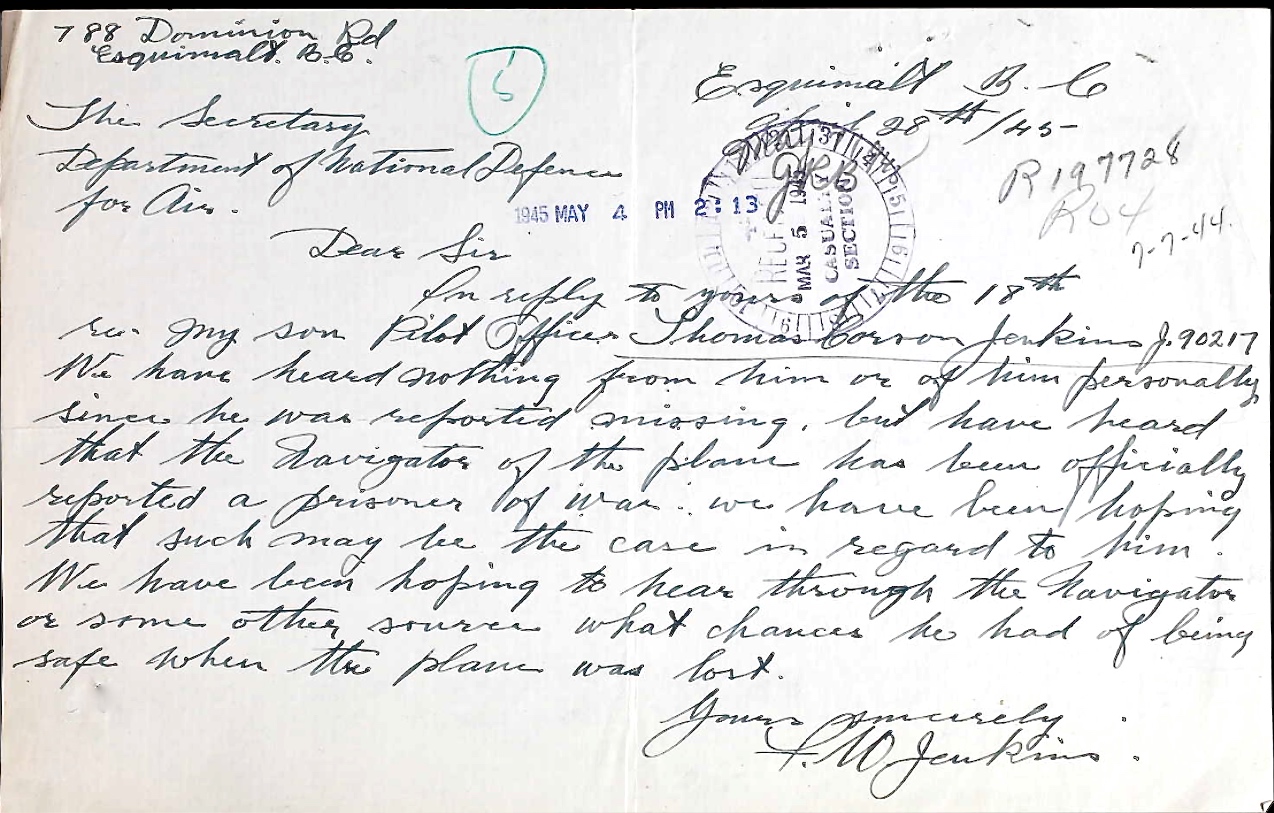 788 Dominion Rd
Esquimalt. B.C.
5
Esquimalt B. C
April 28th/45-
The Secretary
Department of National Defence
for Air.
R197728
R04
7-7-44.
1945 MAY 4 PM 2:13
REC'D
MAR 5 1945
CASUALTY
SECTION
Dear Sir
In reply to yours of the 18th
re. my son Pilot Officer Thomas Jenkins J.90217
We have heard nothing from him or of him personally
since he was reported missing, but have heard
that the Navigator of the plane has been officially
reported a prisoner of war. we have been hoping
that such may be the case in regard to him.
We have been hoping to hear through the Navigator
or some other source what chances he had of being
safe when the plane was lost.
Yours sincerely
Jenkins.